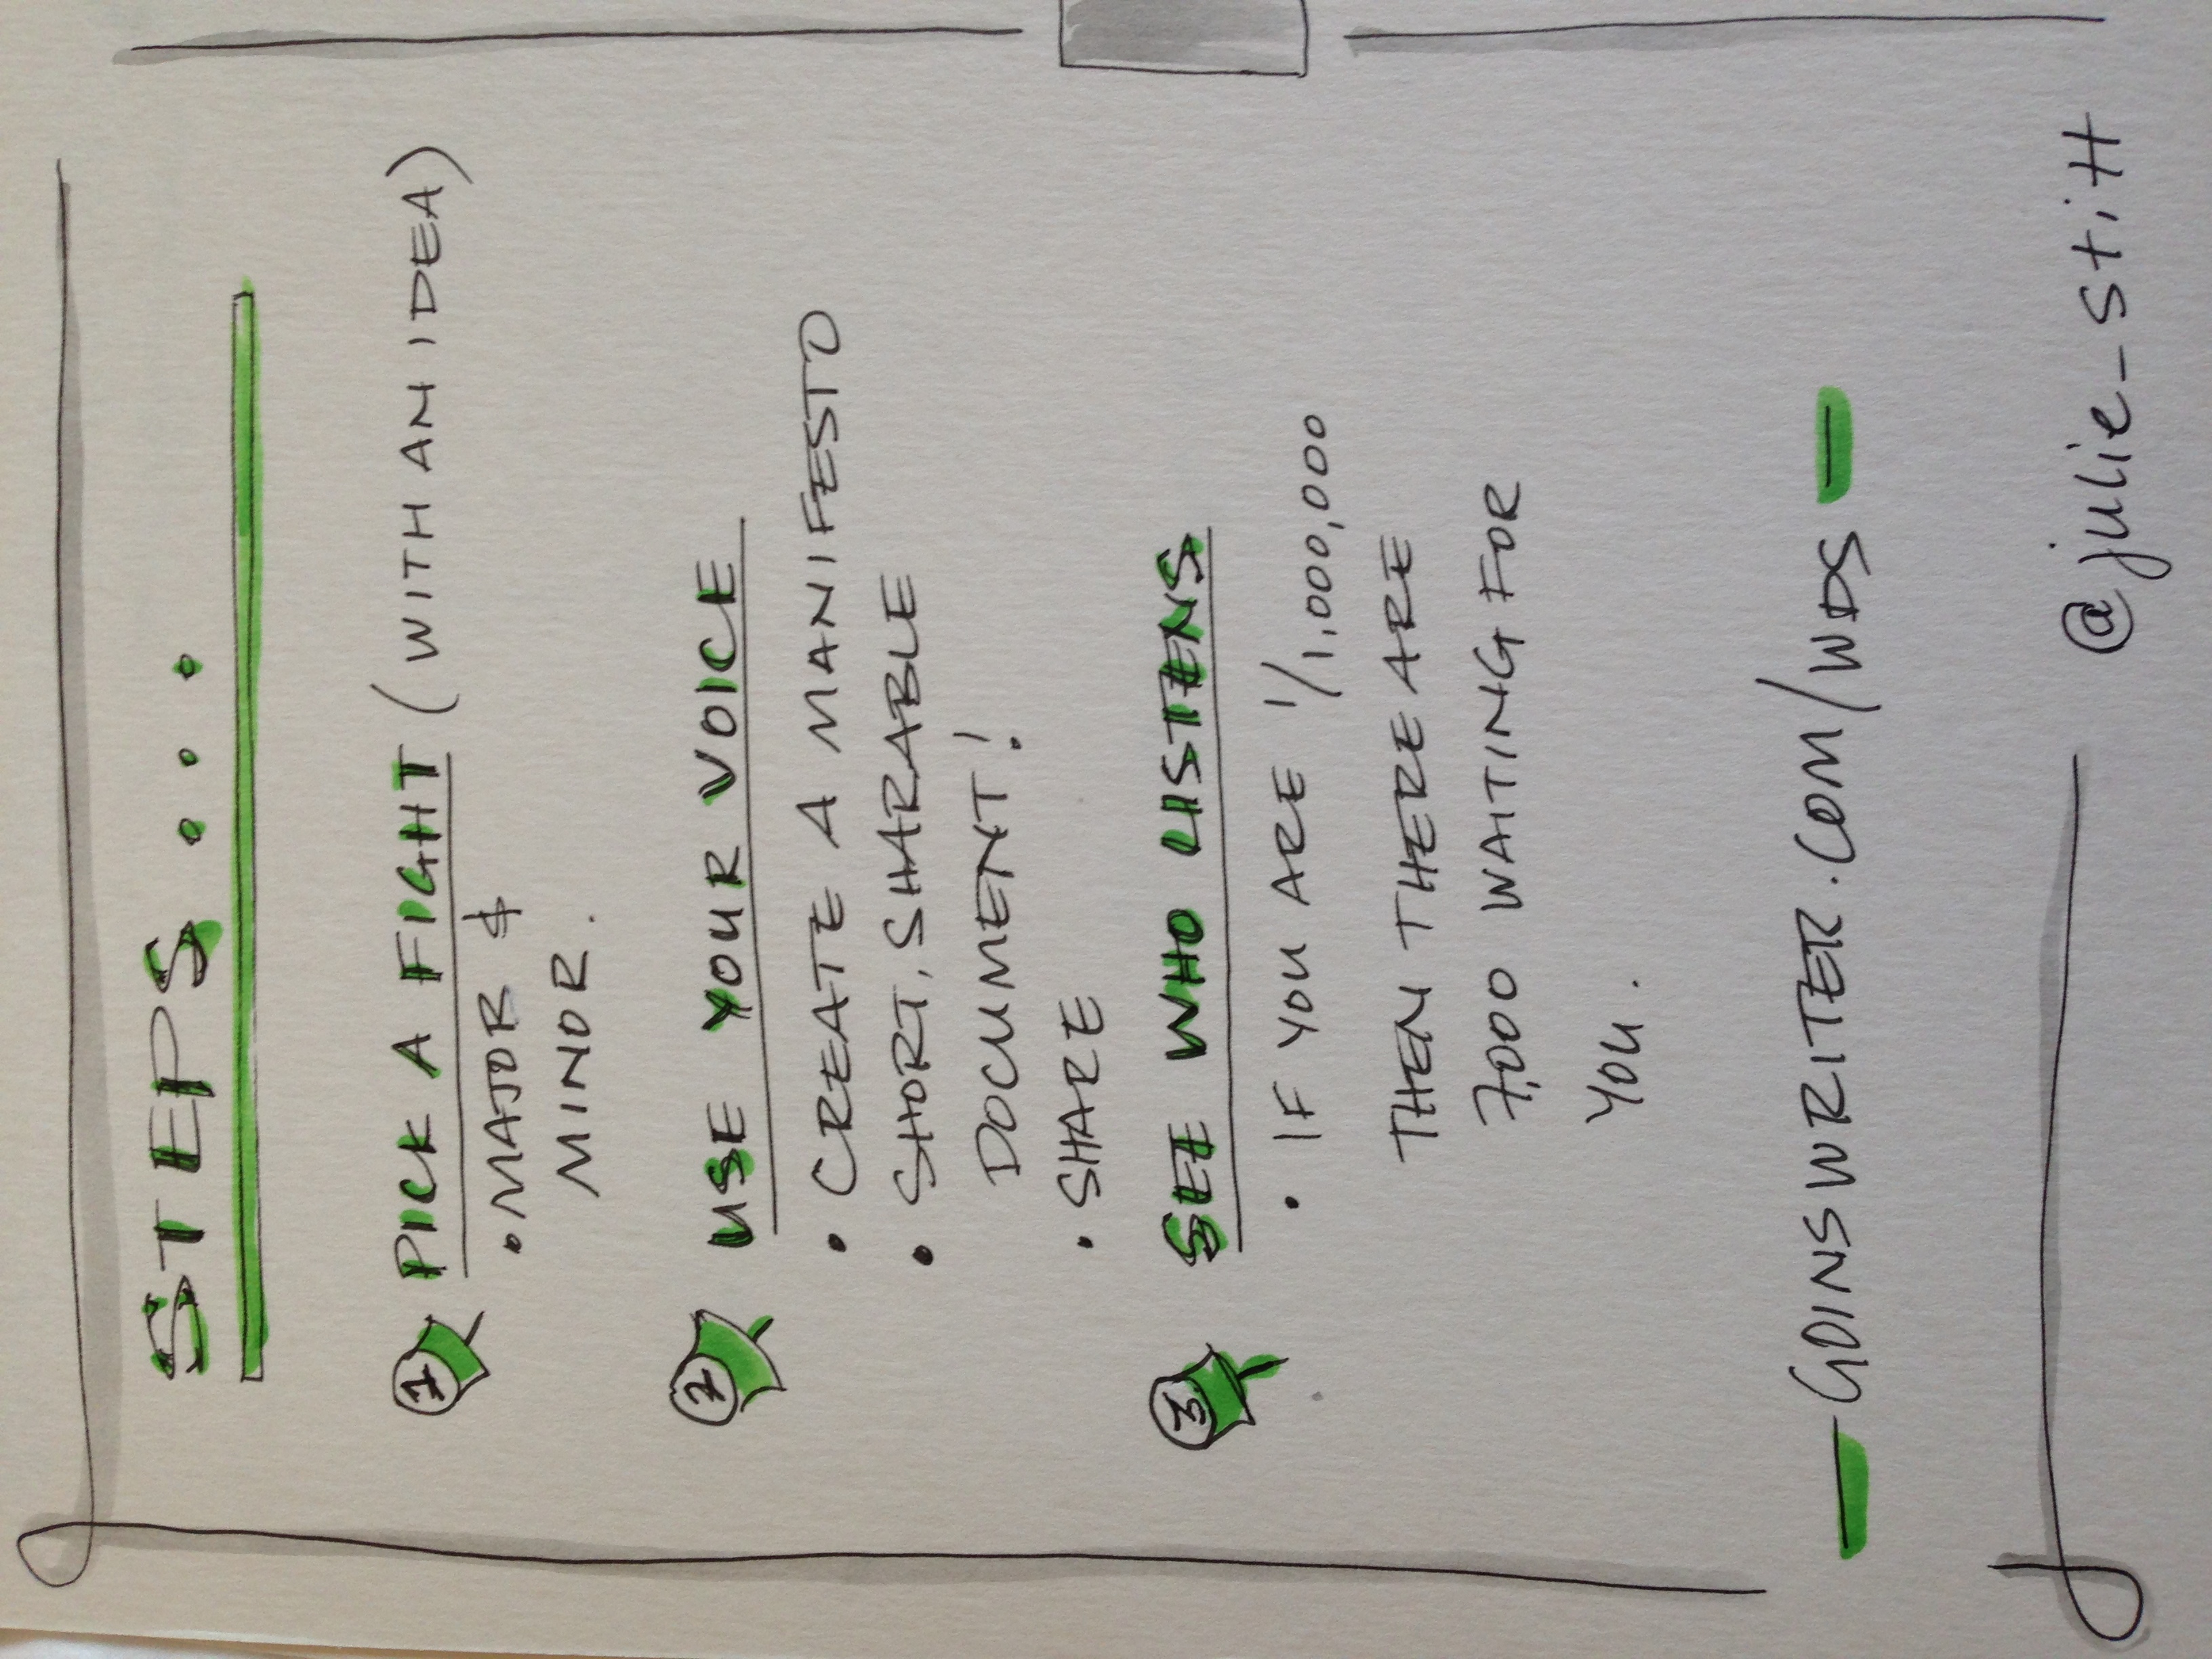 STEPS...
1 PICK A FIGHT (WITH AN IDEA)
• MAJOR &
MINOR.
2 USE YOUR VOICE
• CREATE A MANIFESTO
• SHORT, SHARABLE
DOCUMENT!
• SHARE
3 SEE WHO LISTENS
• IF YOU ARE 1/1,000,000
THEN THERE ARE
7,000 WAITING FOR
YOU.
— GOINSWRITER.COM/WDS —
@julie-stitt